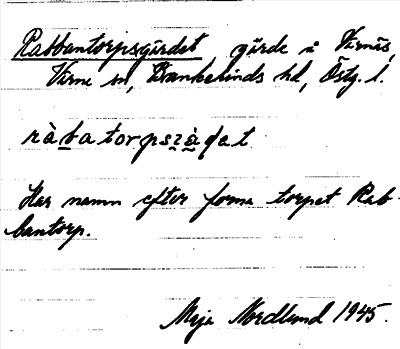 Rabbantorpsgärdet gärde i Virnäs,
Virne sn, Bankekinds hd, Östg. l.
ràbatorpsz̀àɖet
Har namn efter forna torpet Rab-
bantorp.
Maja Nordlund 1945.